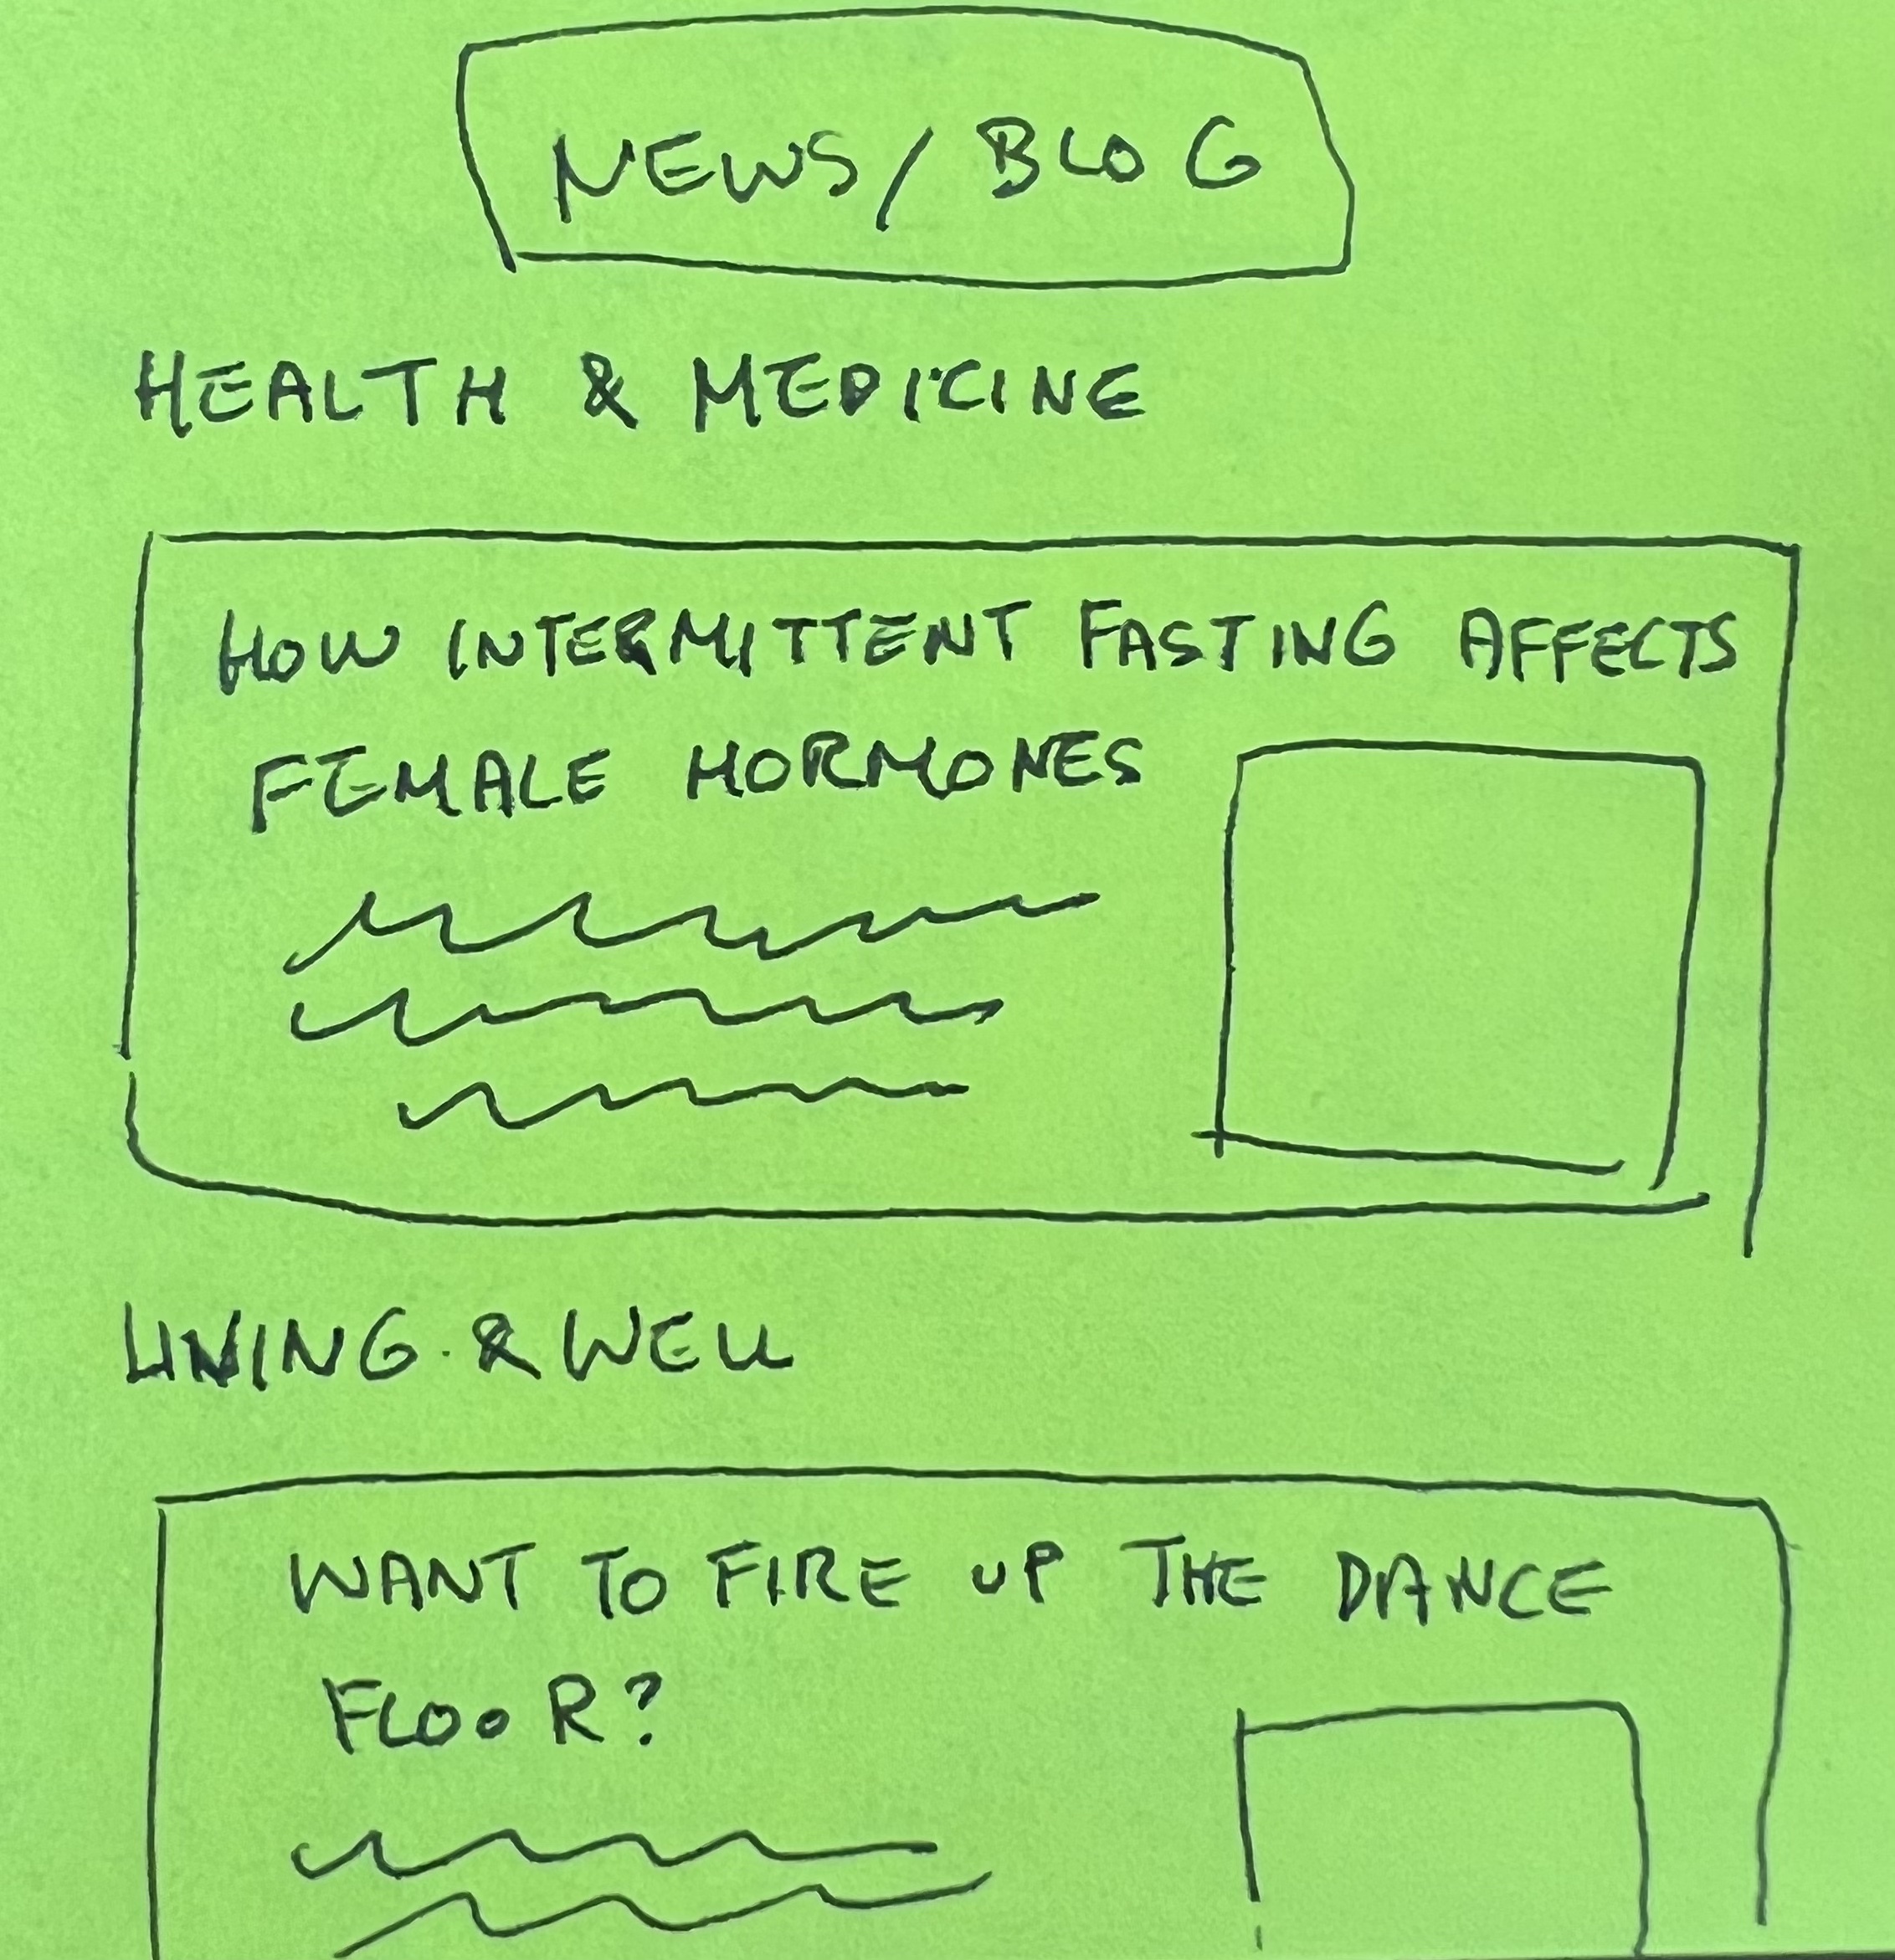 NEWS/ BLOG
HEALTH & MEDICINE
HOW INTERMITTENT FASTING AFFECTS
FEMALE HORMONES
LIVING & WELL
WANT TO FIRE UP THE DANCE
FLOOR?